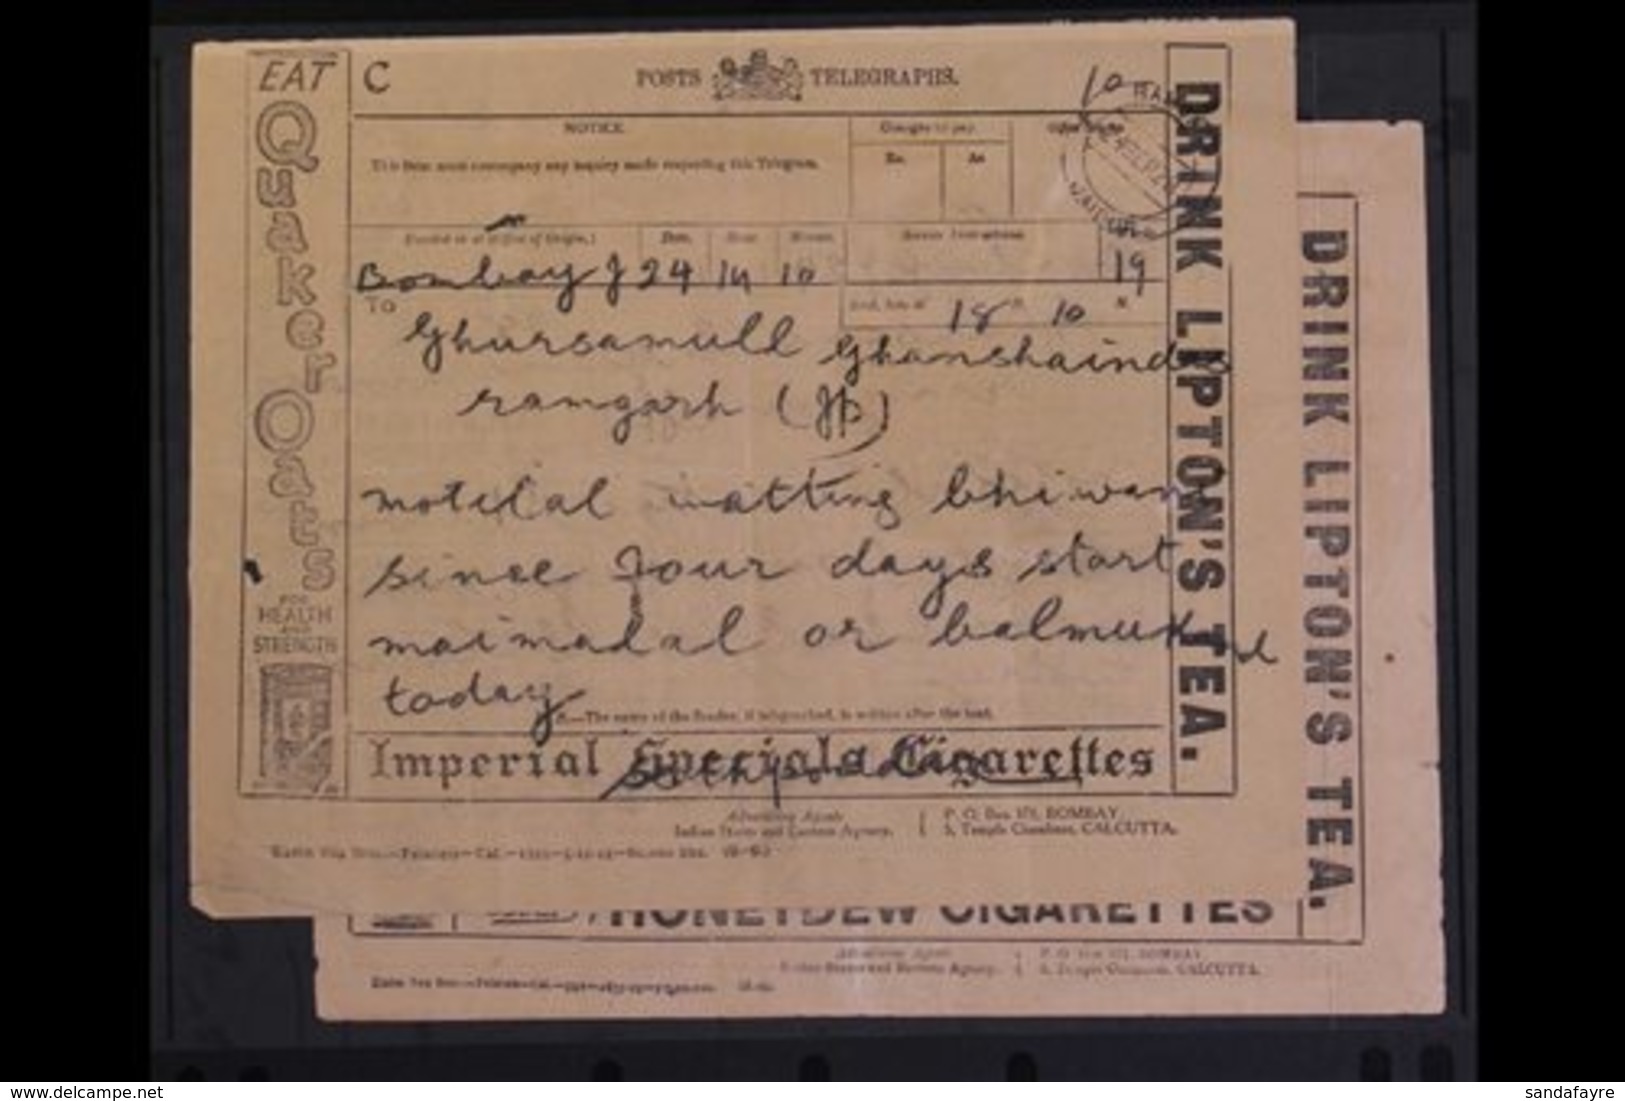 EAT
Quaker Oats
FOR
HEALTH
AND
STRENGTH
C
POSTS TELEGRAPHS.
NOTICE.
This form must accompany any inquiry made respecting this Telegram.
Charges to pay.
Rs. As
Office Stamp
10
Handed in at (Office of Origin.) Date. Hour. Minute. Service Instructions.
Bombay J 24 14 10 19
TO
18 H. 10 M.
Ghursamull Ghanshaindas
ramgarh (Jp)
motilal waiting bhiwani
since four days start
today
—The name of the Sender, if telegraphed, is written after the text.
Imperial Specials Cigarettes
DRINK LIPTON'S TEA.
Advertising Agents
Indian States and Eastern Agency.
P. O. Box 171, BOMBAY.
5, Temple Chambers, CALCUTTA.
DRINK LIPTON'S TEA.
HONEYDEW CIGARETTES
Advertising Agents
Indian States and Eastern Agency.
P. O. Box 171, BOMBAY.
5, Temple Chambers, CALCUTTA.
www.delcampe.net
sandafayre